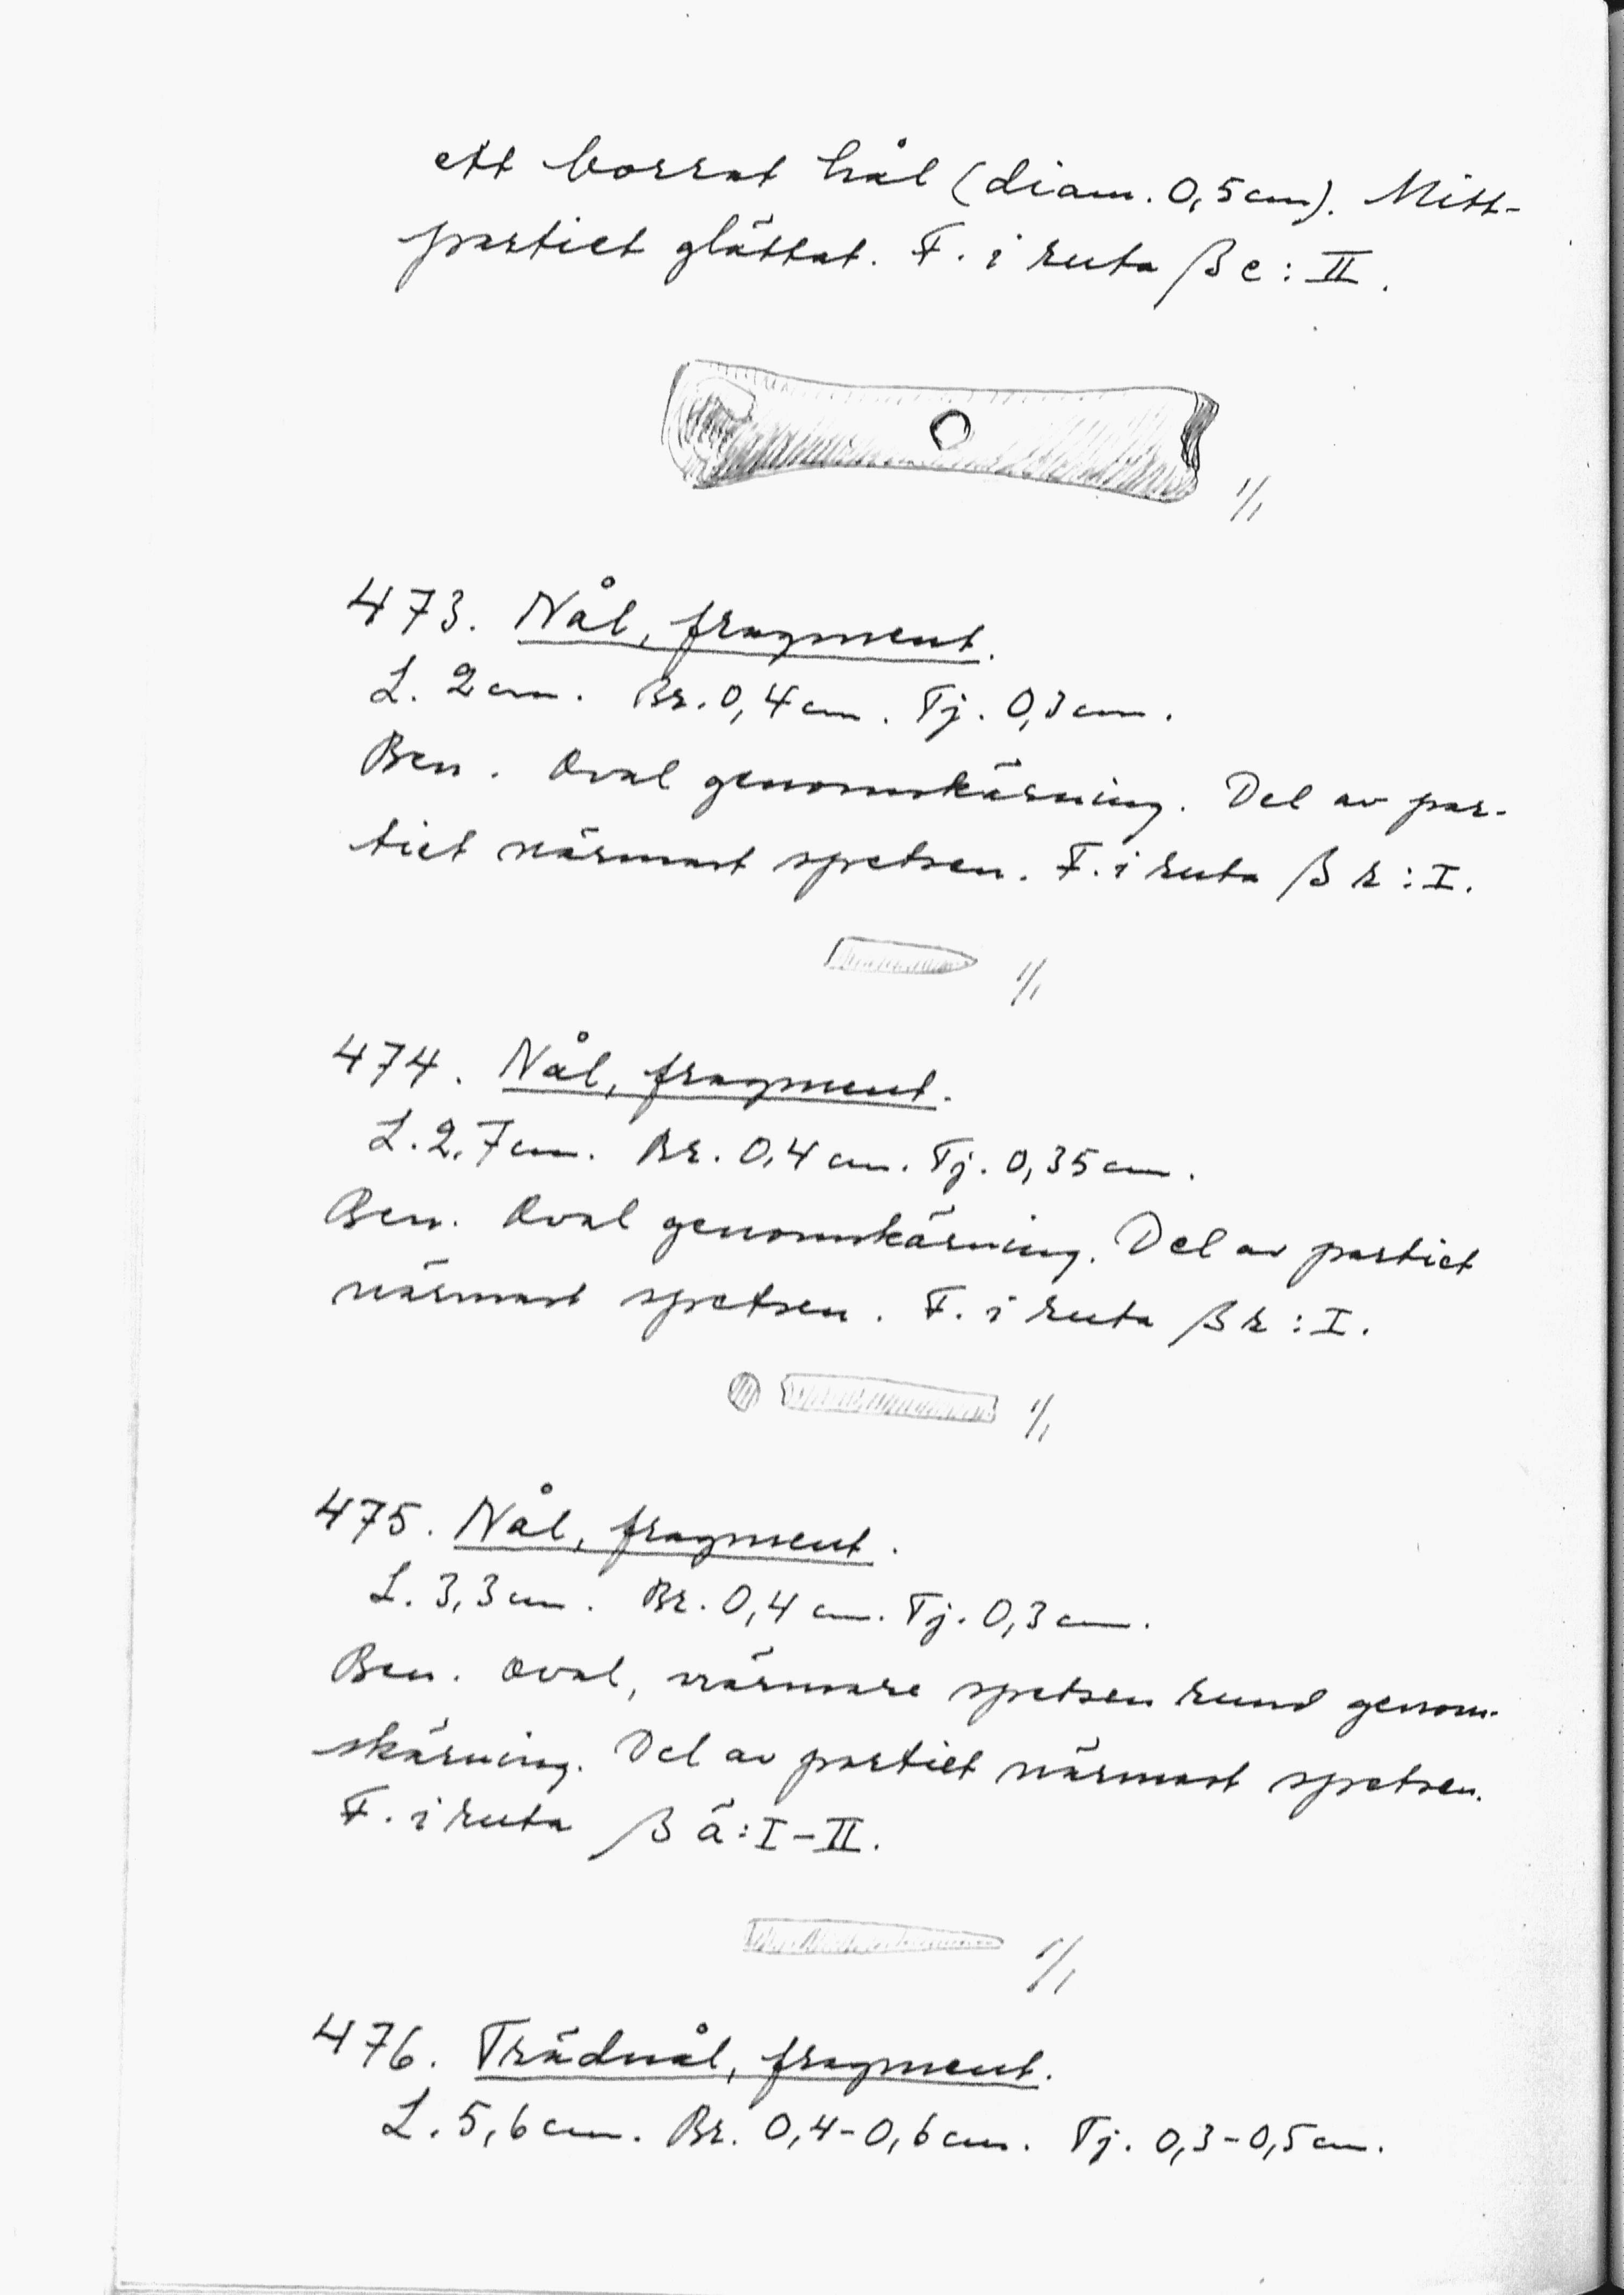 ett borrat hål (diam. 0,5 cm). Mitt-
partiet glättat. F. i ruta β e : II.
1/1
473. Nål, fragment.
L. 2 cm. Br. 0,4 cm. Tj. 0,3 cm.
Ben. Oval genomskärning. Del av par-
tiet närmast spetsen. F. i ruta β r : I.
1/1
474. Nål, fragment.
L. 2,7 cm. Br. 0,4 cm. Tj. 0,35 cm.
Ben. Oval genomskärning. Del av partiet
närmast spetsen. F. i ruta β r : I.
1/1
475. Nål, fragment.
L. 3,3 cm. Br. 0,4 cm. Tj. 0,3 cm.
Ben. Oval, närmare spetsen rund genom-
skärning. Del av partiet närmast spetsen.
F. i ruta β ä : I-II.
1/1
476. Trädnål, fragment.
L. 5,6 cm. Br. 0,4-0,6 cm. Tj. 0,3-0,5 cm.